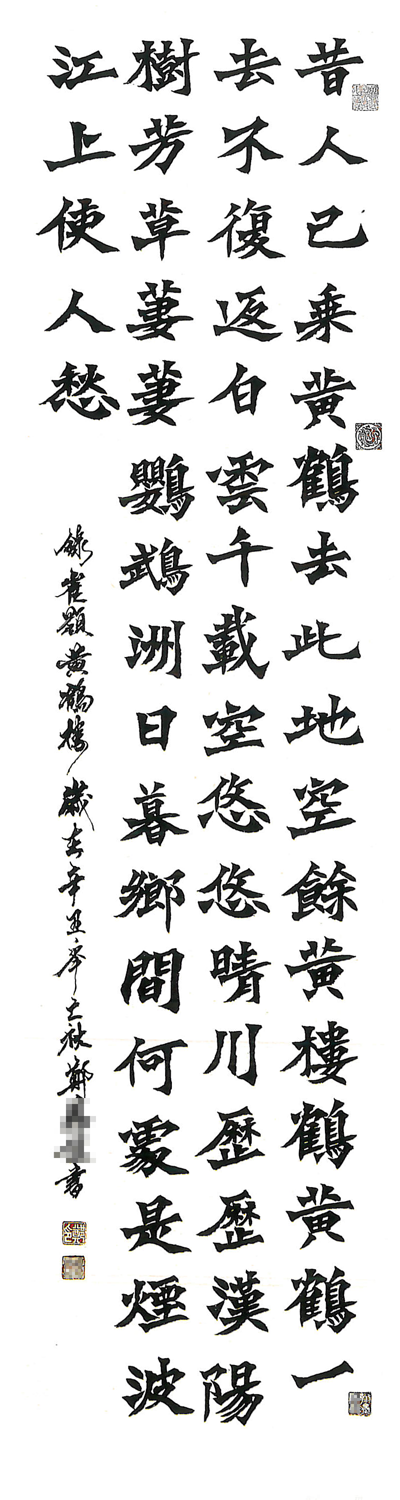 昔人已乘黄鶴去此地空餘黄樓鶴黄鶴一
去不復返白雲千載空悠悠晴川歷歷漢陽
樹芳草萋萋鸚鵡洲日暮鄉間何處是煙波
江上使人愁
錄崔顥黄鶴樓歲在辛丑年之秋鄭書